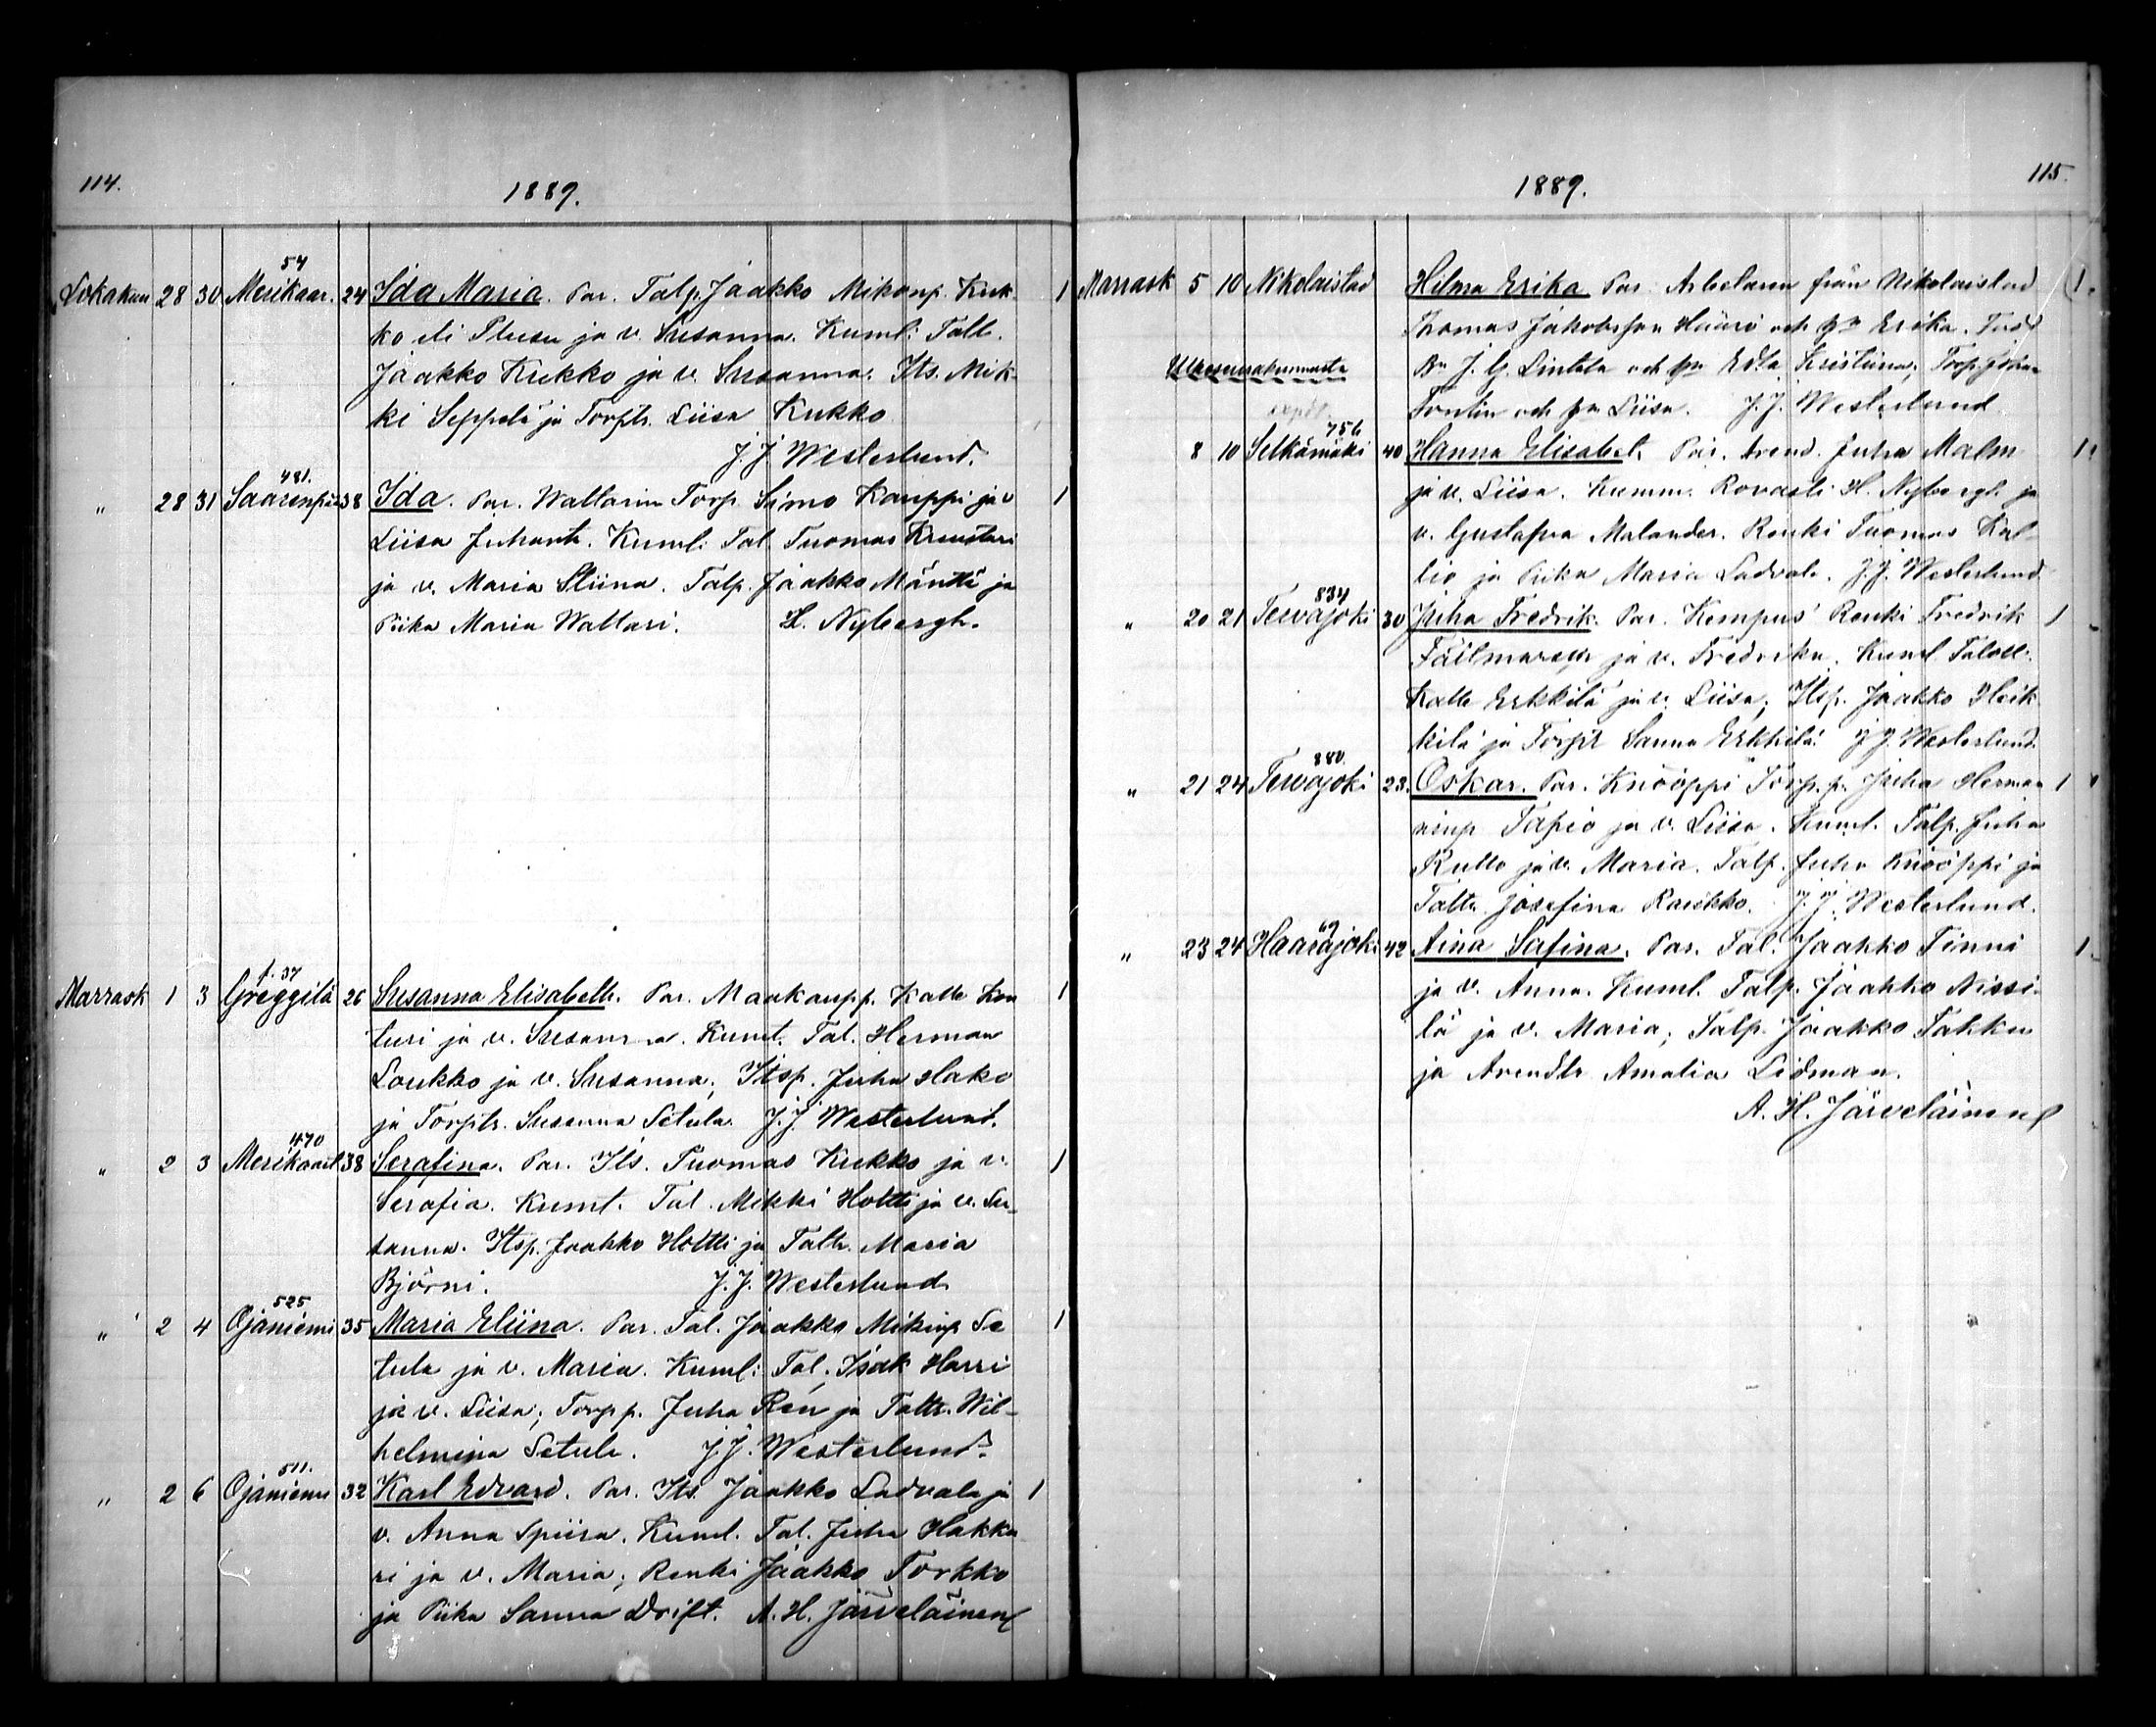 114.
1889.
Lokakuu 28 30 54 Merikaar. 24 Ida Maria. Par. Talp. Jaakko Mikonp. Kuk- 1
ko eli ja v. Susanna. Kuml: Tall.
Jaakko Kukko ja v. Susanna. Its. Mik-
ki Seppelä ja Torptr. Liisa Kukko
J. J. Westerlund.
" 28 31 481. Saarenpää 38 Ida. Par. Waltarin Torp. Simo Kauppi ja v 1
Liisa Juhant. Kuml: Tal. Tuomas
ja v. Maria Stiina. Talp. Jaakko Mäntti ja
Piika Maria Waltari. H. Nybergh.
Marrask 1 3 f. 37 Greggilä 26 Susanna Elisabeth. Par. Maakaupp. Kalle 1
turi ja v. Susanna. Kuml. Tal. Herman
Loukko ja v. Susanna; Itsp. Juha Hako
ja Torptr. Susanna Setula. J. J. Westerlund.
" 2 3 470 Merikaart. 38 Serafina. Par. Its. Tuomas Kukko ja v. 1
Serafia. Kuml. Tal. Mikki Holtti ja v. Su-
sanna. Itsp. Jaakko Holtti ja Taltr. Maria
Björni. J. J. Westerlund
" 2 4 525 Ojaniemi 35 Maria Eliina. Par. Tal. Jaakko Mikinp. Se 1
tula ja v. Maria. Kuml: Tal. Isak Harri
ja v. Liisa; Torpp. Juha Rén ja Taltr. Wil-
helmina Setula. J. J. Westerlund.
" 2 6 511. Ojaniemi 32 Karl Edvard. Par. Its. Jaakko Ladvala ja 1
v. Anna Spiira. Kuml. Tal. Juha Hakku
ri ja v. Maria; Renki Jaakko Torkko
ja Piika Sanna Drift. A. H. Järveläinen
115.
1889.
Marrask 5 10 Nikolaistad Hilma Erika Par. Arbetaren från Nikolaistad 1.
Thomas Jakobsson och hu Erika. Fadd
Bn J. G. Lintala och hu Edla Kristiina; Torp. Johan
Ulkoseurakunnasta
Fontin och hu Liisa. J. J. Westerlund
8 10 756 Selkämäki 40 Hanna Elisabet. Par. Arend. Juha Malm 1.
ja v. Liisa. Kumm. Rovasti H. Nybergh ja
v. Gustafva Malander. Renki Tuomas Kal-
lio ja Piika Maria Ladvala. J. J. Westerlund
" 20 21 834 Tervajoki 30 Juha Fredrik. Par. Kempus Renki Fredrik 1
ja v. Fredrika. Kuml. Taloll.
Kalle Erkkilä ja v. Liisa; Itsp. Jaakko Heik
kilä ja Torptr Sanna Erkkilä. J. J. Westerlund.
" 21 24 880. Tervajoki 28. Oskar. Par. Knööppi Torp. p. Juha Herman 1
ninp Tapio ja v. Liisa. Kuml. Talp. Juha
Rullo ja v. Maria. Talp. Juho Knööppi ja
Taltr. Josefina Raukko. J. J. Westerlund.
" 23 24 69 Haarajoki 42 Aina Safina. Par. Tal. Jaakko Tinni 1.
ja v. Anna. Kuml. Talp. Jaakko Nissi-
lä ja v. Maria; Talp. Jaakko Takku
ja Arendtr Amalia Lidman.
A. H. Järveläinen